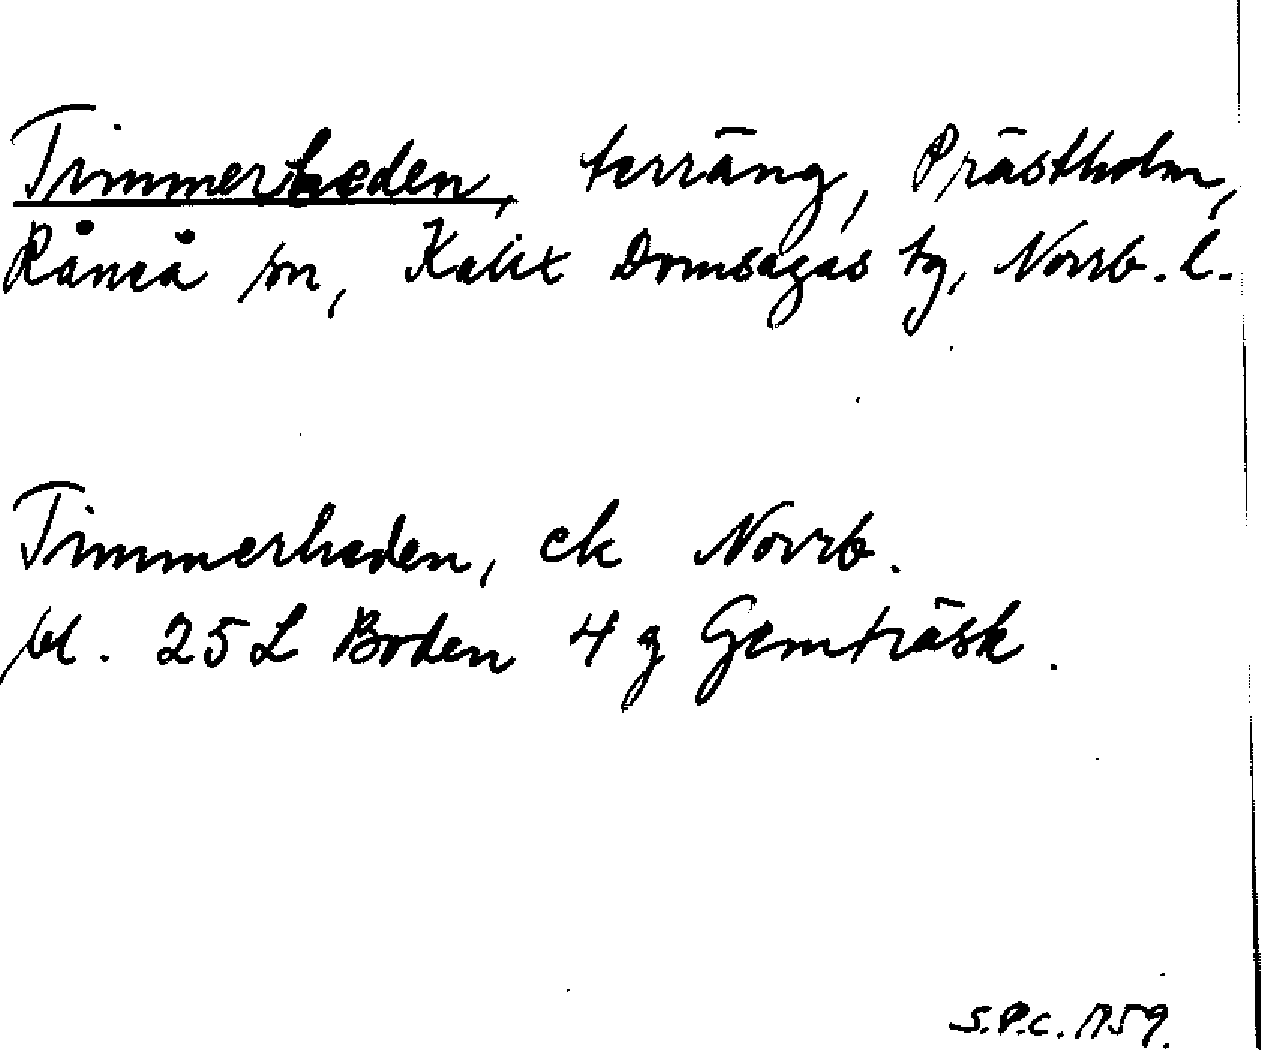 Timmerheden, terräng, Prästholm,
Råneå sn, Kalix Domsagas tg, Norrb. l.
Timmerheden, ek Norrb.
bl. 25 L Boden 4 g Gemträsk.
S.P.C. 1759.